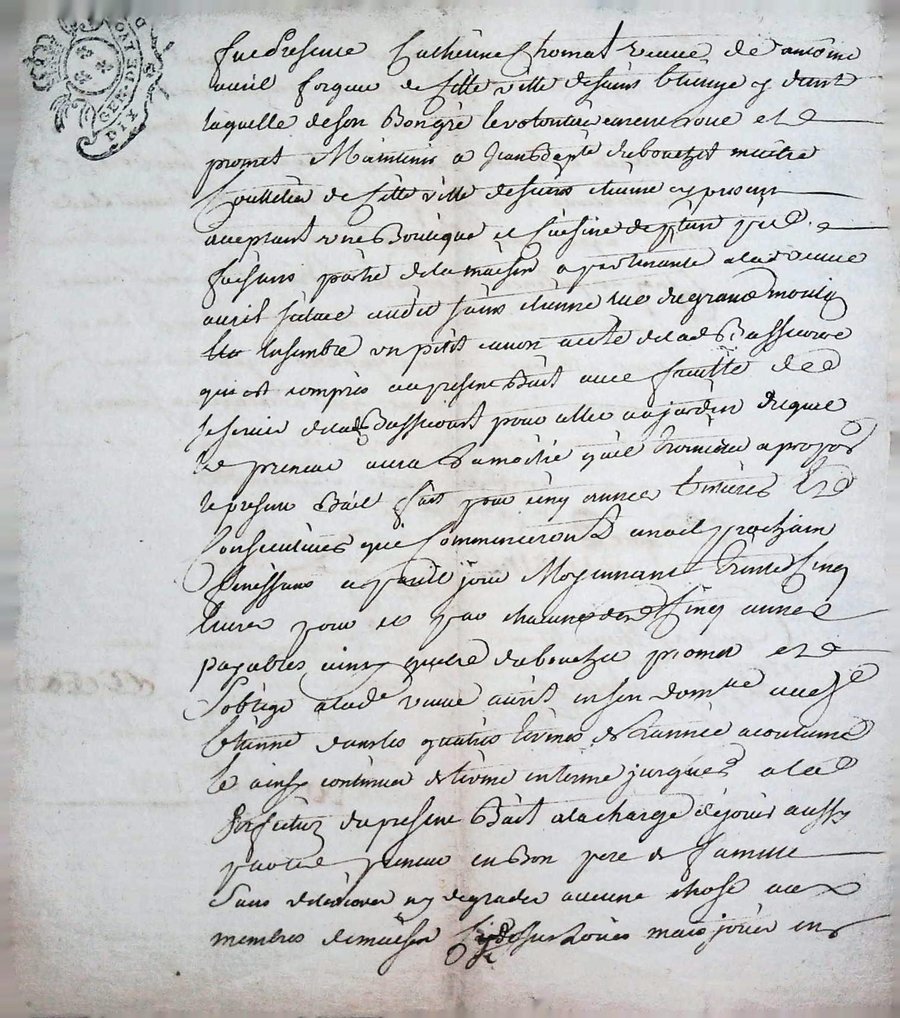 GEN. DE LYO
DIX
fut presente Catherine Thomat veuve de antoine
avril forgeur de cette ville de saint Etienne y
laquelle de son Bon gré et volonté et
promet Maintenir a Jean Bapte dubouchet maitre
de cette ville de saint etienne cy present
aceptant une Boutique et Cuisine de plain
faisant partie de la maison apartenante a la veuve
avril située audit saint etienne rue du grand moulin
Ensemble un petit a coté de lad Bassecourt
qui est compris au present Bail avec faculté de
se servir de lad Bassecourt pour aller au jardin duquel
le preneur aura la moitié qu'il a propos
le present Bail fait pour cinq années Entieres Et
Consecutives qui Commenceront a noel prochain
finissant a pareil jour Moyennant trente Cinq
livres pour et par chacune des Cinq années
payables ainsy que led dubouchet promet et
s'oblige a lad veuve avril en son domlle aud St
Etienne dans les quatres termes de L'année acoutumé
Et ainsy continuer de terme en terme jusques a la
fin du present Bail a la charge de jouir aussy
par led preneur en Bon pere de famille
Sans deteriorer ny degrader aucune chose aux
membres de maison cy dessus Loués mais jouir en